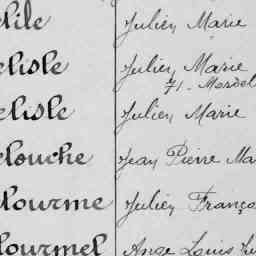 elile Julien Marie
elisle Julien Marie
71. Mordel
elisle Julien Marie
elouche Jean Pierre Ma
lourme Julien Franço
lourmel Ange Louis